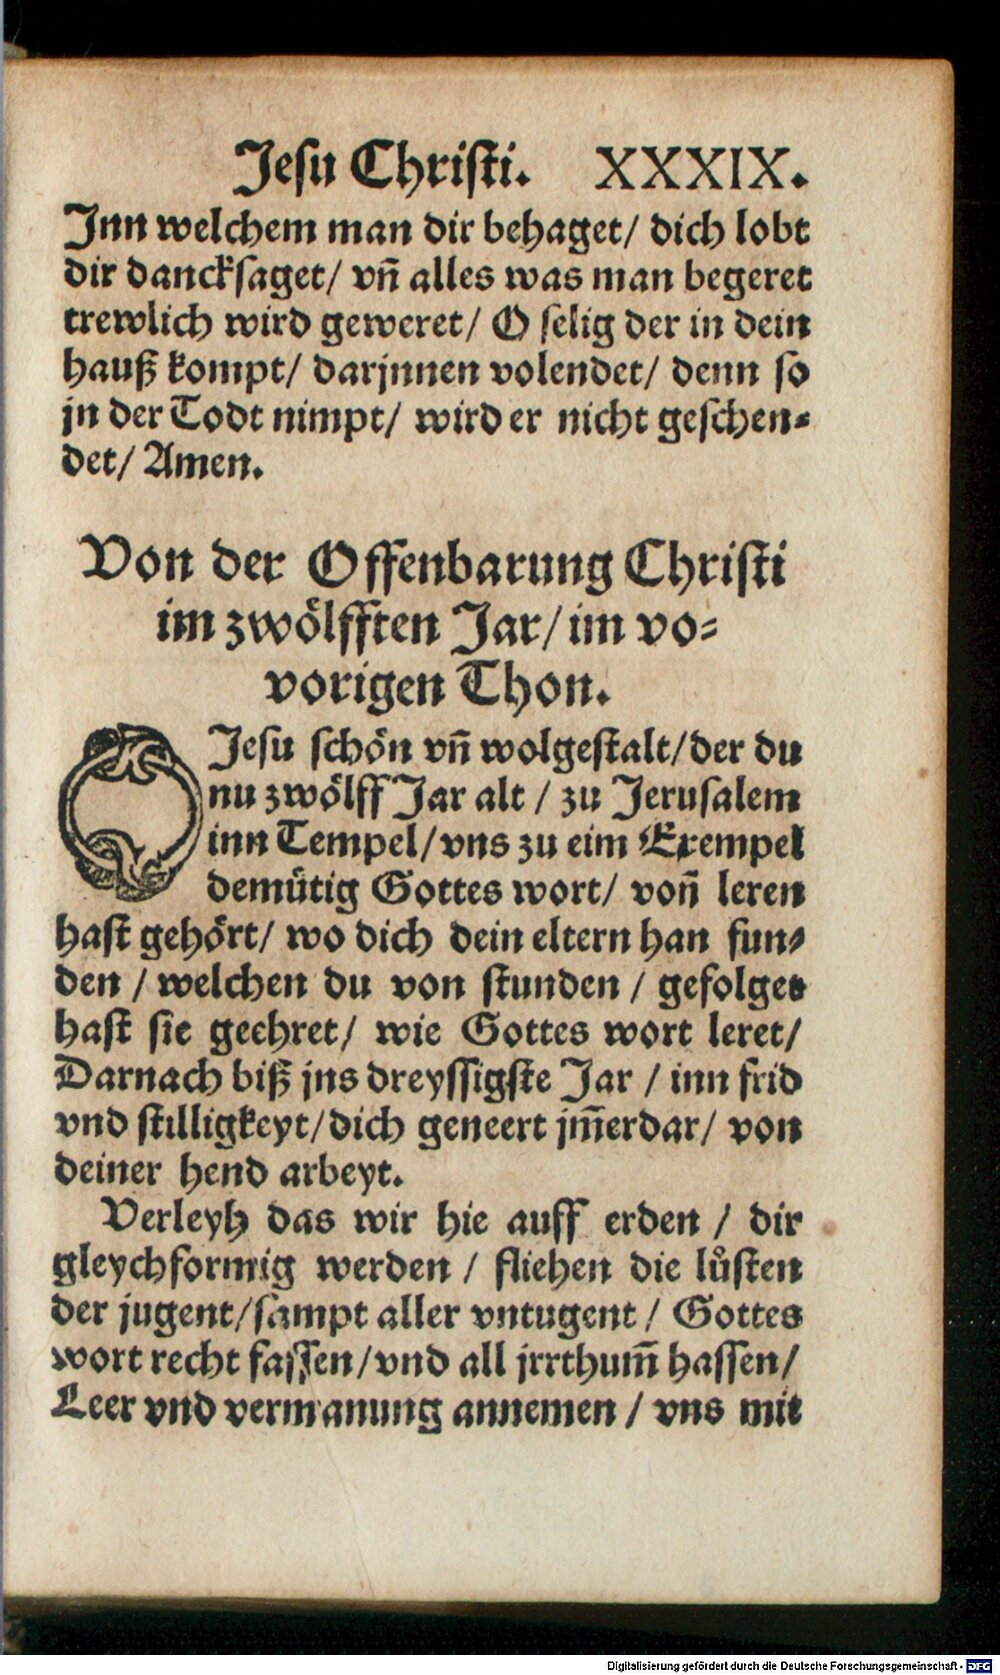 Jesu Christi. XXXIX.
Jnn welchem man dir behaget/ dich lobt
dir dancksaget/ vñ alles was man begeret
trewlich wird geweret/ O selig der in dein
hauß kompt/ darjnnen volendet/ denn so
jn der Todt nimpt/ wird er nicht geschen⸗
det/ Amen.
Von der Offenbarung Christi
im zwölfften Jar/ im vo⸗
vorigen Thon.
O Jesu schön vñ wolgestalt/ der du
nu zwölff Jar alt / zu Jerusalem
inn Tempel/ vns zu eim Exempel
demütig Gottes wort/ voñ leren
hast gehört/ wo dich dein eltern han fun⸗
den / welchen du von stunden / gefolget
hast sie geehret/ wie Gottes wort leret/
Darnach biß jns dreyssigste Jar / inn frid
vnd stilligkeyt/ dich geneert jm̃erdar/ von
deiner hend arbeyt.
Verleyh das wir hie auff erden / dir
gleychformig werden / fliehen die lůsten
der jugent/ sampt aller vntugent / Gottes
wort recht fassen/ vnd all jrrthum̃ hassen/
Leer vnd vermanung annemen / vns mit
Digitalisierung gefördert durch die Deutsche Forschungsgemeinschaft - DFG